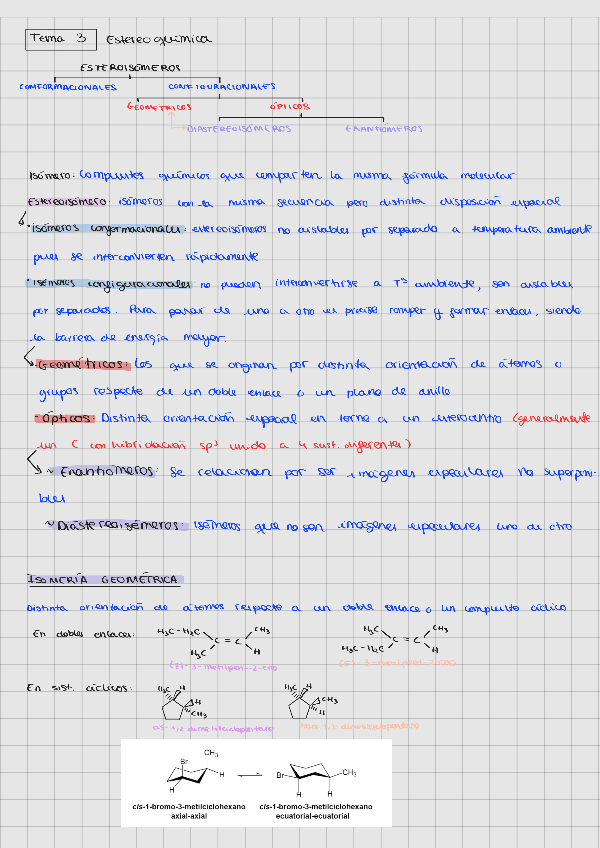 Tema 3 Estereoquímica
ESTEROISÓMEROS
CONFORMACIONALES CONFIGURACIONALES
GEOMÉTRICOS ÓPTICOS
DIASTEREOISÓMEROS ENANTIÓMEROS
Isómero: Compuestos químicos que comparten la misma fórmula molecular
Estereoisómero: isómeros con la misma secuencia pero distinta disposición espacial
· Isómeros conformacionales: estereoisómeros no aislables por separado a temperatura ambiente
pues se interconvierten rápidamente
· Isómeros configuracionales no pueden interconvertirse a Tª ambiente, son aislables
por separados. Para pasar de uno a otro es preciso romper y formar enlaces, siendo
la barrera de energía mayor.
· Geométricos: Los que se originan por distinta orientación de átomos o
grupos respecto de un doble enlace o un plano de anillo
- Ópticos: Distinta orientación espacial en torno a un estereocentro (generalmente
un C con hibridación sp³ unido a 4 sust. diferentes)
~ Enantiómeros: Se relacionan por ser imágenes especulares no superponi-
bles
~ Diastereoisómeros: isómeros que no son imágenes especulares uno de otro
ISOMERÍA GEOMÉTRICA
Distinta orientación de átomos respecto a un doble enlace o un compuesto cíclico
En dobles enlaces:
H₃C-H₂C CH₃ C=C H₃C H
H₃C-H₂C H C=C H₃C CH₃
3-metilpen-2-eno
En sist. cíclicos:
H₃C H H CH₃
H₃C H CH₃ H
cis-1,2-dimetilciclopentano trans-1,2-dimetilciclopentano
CH₃ Br H H
Br CH₃ H H
cis-1-bromo-3-metilciclohexano cis-1-bromo-3-metilciclohexano
axial-axial ecuatorial-ecuatorial